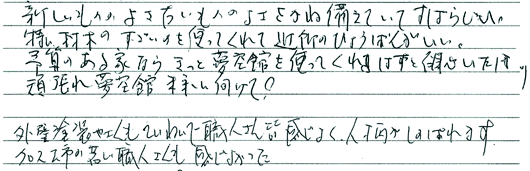 新しいもののよさ古いもののよさをかね備えていてすばらしい。
特に材木のすごいのを使ってくれて近所のひょうばんがいい。
予算のある家ならきっと夢空館を使ってくれるはずと信じています。
頑張れ夢空館 未来に向けて!
外壁塗装やさんもていねいで職人さん皆感じよく、人柄がしのばれます
クロス工事の若い職人さんも感じよかった